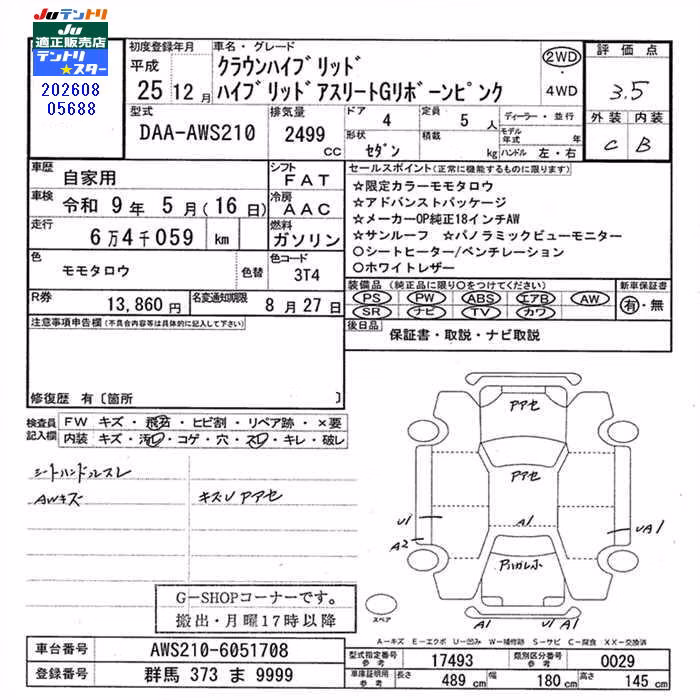 Juテントリ
Ju
適正販売店
テントリ
★スター
202608
05688
初度登録年月
平成
25 12 月
車名・グレード
クラウンハイブリッド
ハイブリッドアスリートGリボーンピンク
2WD
・
4WD
評価点
3.5
外装 内装
C B
型式
DAA-AWS210
排気量
2499 CC
ドア 4
形状 セダン
定員 5 人
積載 kg
ディーラー・並行
モデル年式 年
ハンドル 左・右
車歴 自家用
シフト FAT
車検 令和 9年 5月(16日)
冷房 AAC
走行 6万4千059 km
燃料 ガソリン
色 モモタロウ 色替
色コード 3T4
R券 13,860円
名変通知期限 8月27日
セールスポイント(正常に機能するものに限ります)
☆限定カラーモモタロウ
☆アドバンストパッケージ
☆メーカーOP純正18インチAW
☆サンルーフ ☆パノラミックビューモニター
○シートヒーター/ベンチレーション
○ホワイトレザー
装備品(純正品に限り○をつけてください)
PS PW ABS エアB AW
SR ナビ TV カワ
新車保証書
有・無
後日品
保証書・取説・ナビ取説
注意事項申告欄(不具合内容等は具体的に記入して下さい)
修復歴 有〔箇所 〕
検査員記入欄
FW キズ・飛石・ヒビ割・リペア跡・×要
内装 キズ・汚レ・コゲ・穴・スレ・キレ・破レ
シートハンドルスレ
AWキズ
キズUアアセ
アアセ
アアセ
A1
U1
A2
UA1
A1
U1
A1
スペア
G-SHOPコーナーです。
搬出・月曜17時以降
A-キズ E-エクボ U-凹み W-補修跡 S-サビ C-腐食 XX-交換済
車台番号 AWS210-6051708
登録番号 群馬 373 ま 9999
型式指定番号 参考 17493
類別区分番号 参考 0029
車庫証明用 参考 長さ 489 cm 幅 180 cm 高さ 145 cm